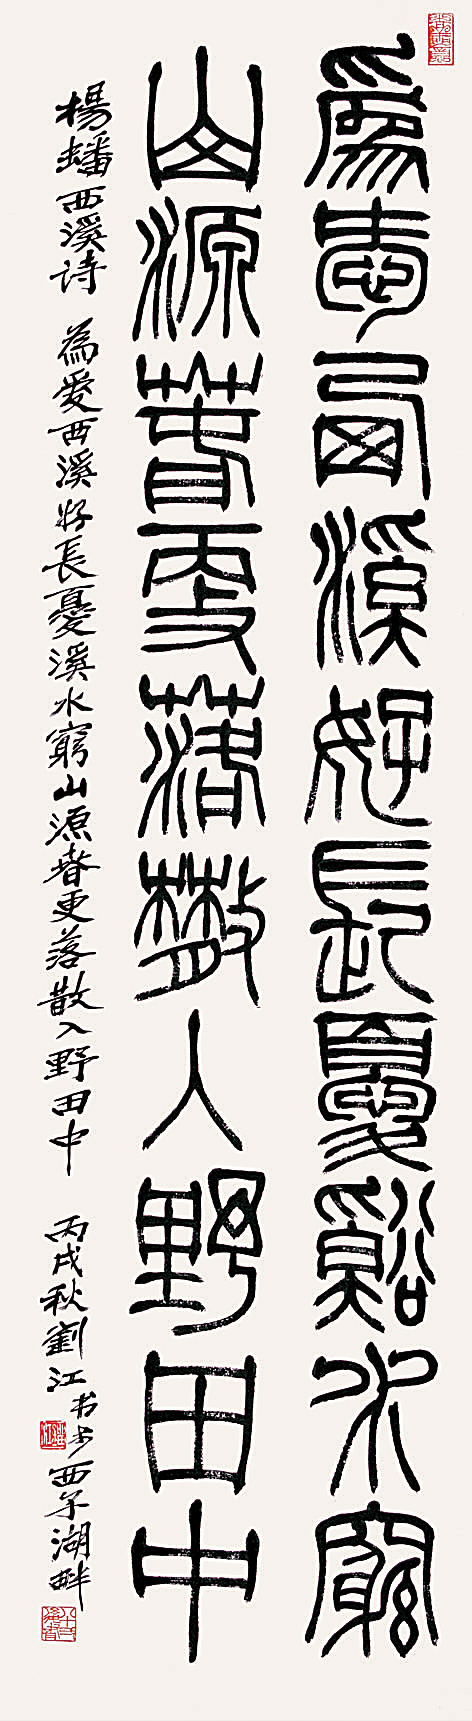 爲愛西溪好長憂谿水窮
山源春更落散入野田中
楊蟠西溪詩 為愛西溪好長憂溪水窮山源春更落散入野田中 丙戌秋劉江书於西子湖畔